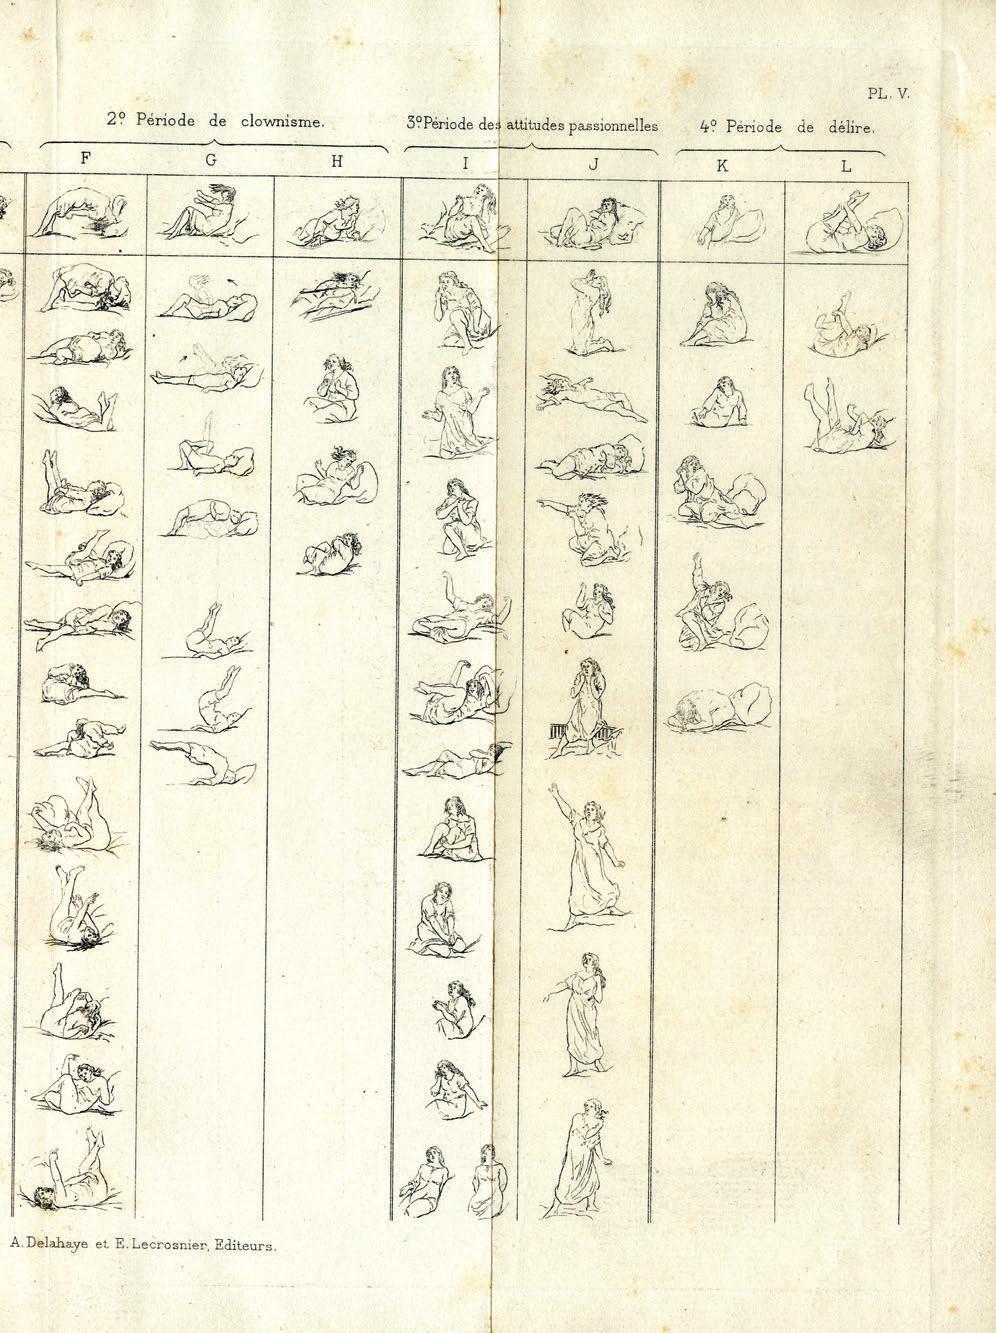 PL. V.
2º Période de clownisme.
3º Période des attitudes passionnelles
4º Période de délire.
F G H I J K L
A. Delahaye et E. Lecrosnier, Editeurs.